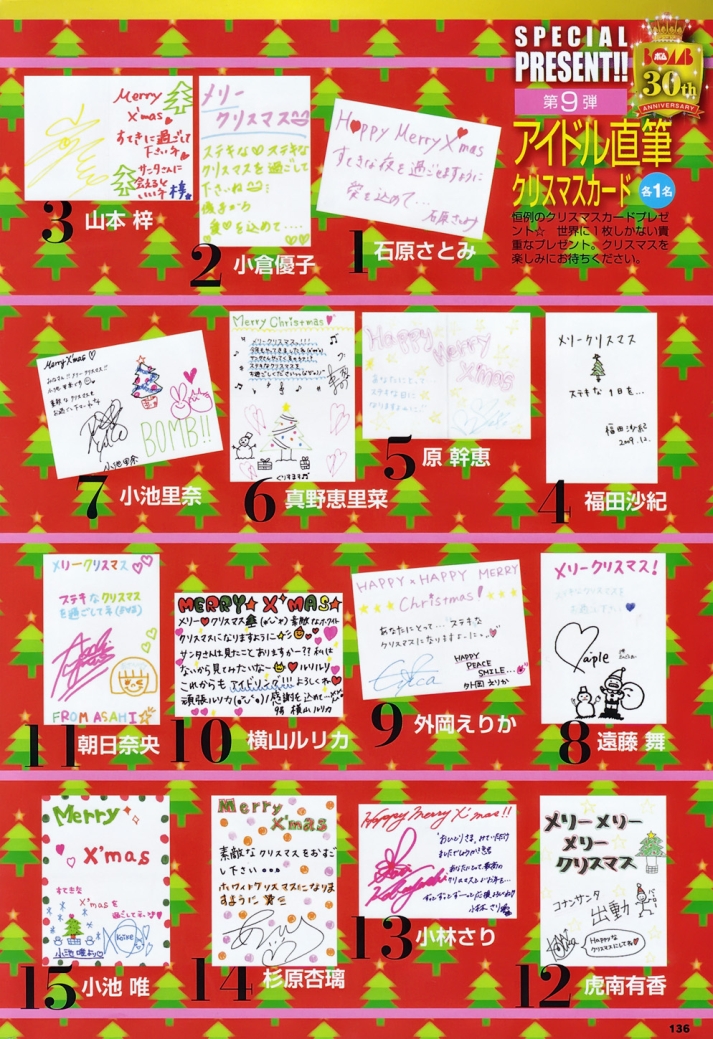 SPECIAL
PRESENT!!
BOMB
30th
ANNIVERSARY
第9弾
アイドル直筆
クリスマスカード
各1名
恒例のクリスマスカードプレゼ
ント☆ 世界に1枚しかない貴
重なプレゼント。クリスマスを
楽しみにお待ちください。
Happy Merry Xmas
すてきな夜を過ごせますように
愛を込めて...
石原さとみ
1 石原さとみ
メリー
クリスマス
ステキな ステキな
クリスマスを過ごして
下さいね
2 小倉優子
Merry
X'mas
すてきに過ごして
下さいネ
サンタさんに
会えると
いいネ
梓
3 山本 梓
メリークリスマス
ステキな1日を...
福田沙紀
2009.12.
4 福田沙紀
Happy
Merry
Xmas
あなたにとって
ステキな日に
なりますように
5 原 幹恵
Merry Christmas
ステキなクリスマスを
お過ごしください
6 真野恵里菜
Merry X'mas
みなさん!!メリークリスマス!!
素敵なクリスマスを
お過ごし下さいね
BOMB!!
小池里奈
7 小池里奈
メリークリスマス!
ステキなクリスマスを
お過ごし下さい
8 遠藤 舞
HAPPY×HAPPY MERRY
Christmas!
あなたにとって...ステキな
クリスマスになりますよーに
HAPPY
PEACE
SMILE...
外岡えりか
9 外岡えりか
MERRY☆X'MAS☆
メリークリスマス 素敵なホワイト
クリスマスになりますように
サンタさんは見たことありますかー??私は
ないから見てみたいなー ルリルリ
これからもアイドリング!!!よろしくね
頑張ルリカ 感謝を込めて
9号 横山ルリカ
10 横山ルリカ
メリークリスマス
ステキなクリスマス
を過ごして下さい
FROM ASAHI
11 朝日奈央
メリーメリー
メリー
クリスマス
コナンサンタ
出動
Happyな
クリスマスにしてね
12 虎南有香
Happy Merry X'mas!!
小林さり
13 小林さり
Merry
X'mas
素敵なクリスマスをおすご
し下さい...
ホワイトクリスマスになりま
すように
14 杉原杏璃
Merry
X'mas
すてきな
X'masを
過ごして下さい
Koike
小池唯より
15 小池 唯
136